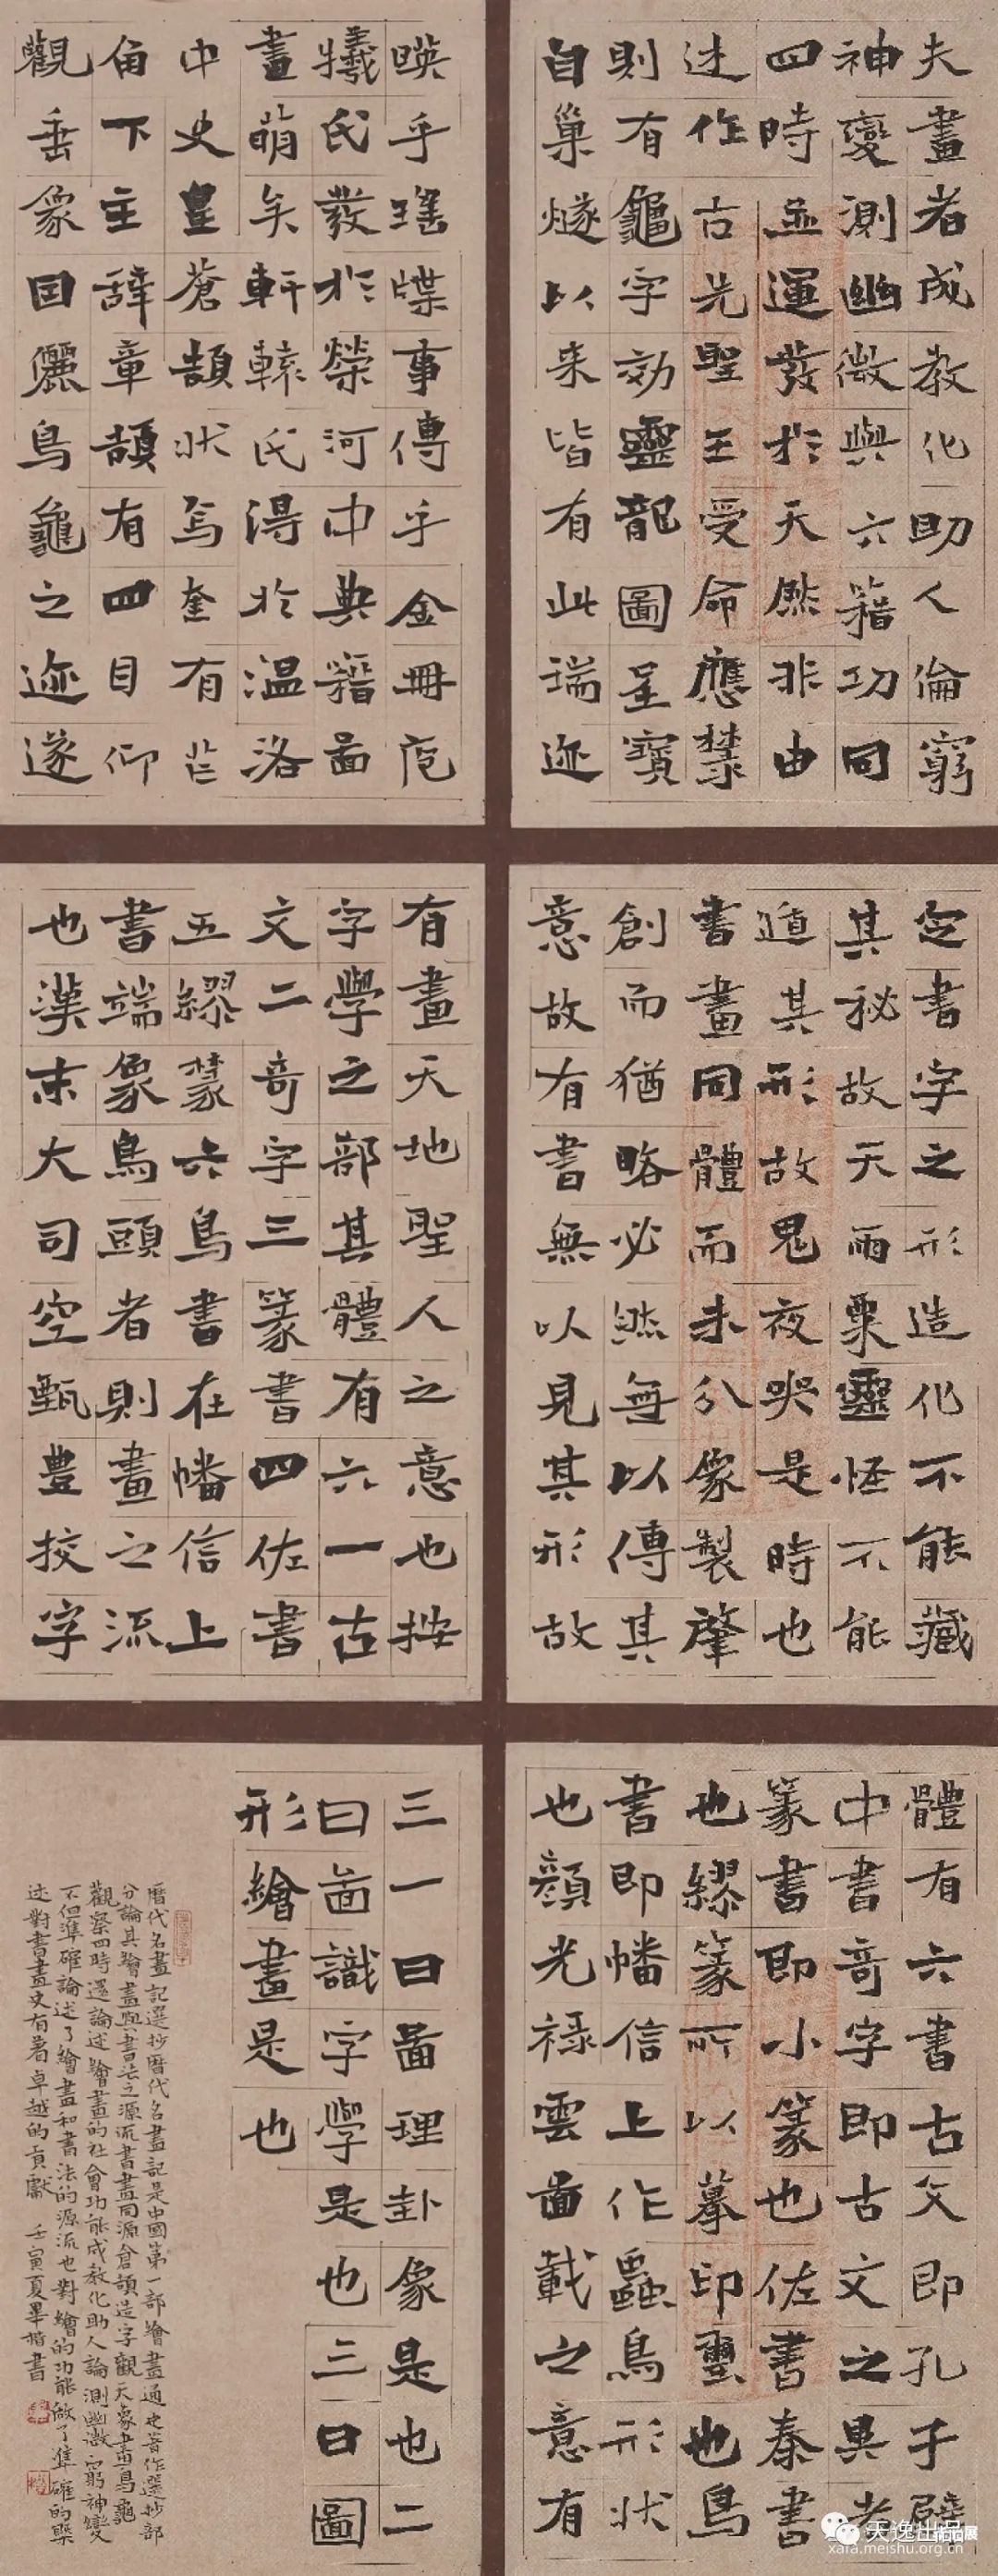 夫畫者成教化助人倫窮
神變測幽微與六籍功同
四時並運發於天然非由
述作古先聖王受命應籙
則有龜字効靈龍圖呈寶
自巢燧以來皆有此瑞迹
暎乎瑤牒事傳乎金冊庖
犧氏發於榮河中典籍啚
畫萌矣軒轅氏得於溫洛
中史皇蒼頡狀焉奎有芒
角下主辞章頡有四目仰
觀垂象因儷鳥龜之迹遂
定書字之形造化不能藏
其祕故天雨粟靈怪不能
遁其形故鬼夜哭是時也
書畫同體而未分象製肇
創而猶略必然無以傳其
意故有書無以見其形故
有畫天地聖人之意也按
字學之部其體有六一古
文二奇字三篆書四佐書
五繆篆六鳥書在幡信上
書端象鳥頭者則畫之流
也漢末大司空甄豊挍字
體有六書古文即孔子壁
中書奇字即古文之異者
篆書即小篆也佐書秦書
也繆篆所以摹印璽也鳥
書即幡信上作蟲鳥形狀
也顏光禄雲啚載之意有
三一曰啚理卦象是也二
曰啚識字學是也三曰圖
形繪畫是也
曆代名畫記選抄曆代名畫記是中國第一部繪畫通史著作選抄部
分論其繪畫與書法之源流書畫同源倉頡造字觀天象畫鳥龜
觀察四時還論述繪畫的社會功能成教化助人論測幽微窮神變
不但準確論述了繪畫和書法的源流也對繪的功能做了準確的槩
述對書畫史有着卓越的貢獻 壬寅夏畢楷書
天逸出品
xara.meishu.org.cn